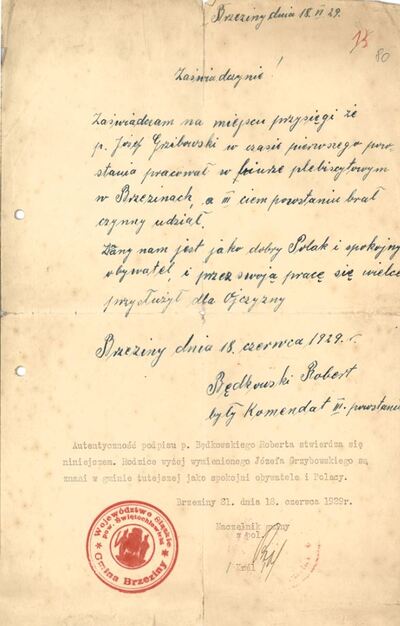 Brzeziny dnia 18. VI 29.
15
80
Zaświadczynie!
Zaświadczam na miejscu przysięgi że
p. Józef Grzibowski w czasie pierwszego pow-
stania pracował w biurze plebiscytowym
w Brzezinach, a III ciem powstaniu brał
czynny udział.
Znany nam jest jako dobry Polak i spokojny
obywatel i przez swoją pracę się wielce
przysłużył dla Ojczyzny
Brzeziny dnia 18. czerwca 1929. r.
Będkowski Robert
były Komendat III. powstania
Autentyczność podpisu p. Będkowskiego Roberta stwierdza się
niniejszem. Rodzice wyżej wymienionego Józefa Grzybowskiego są
znani w gminie tutejszej jako spokojni obywatele i Polacy.
Brzeziny Śl. dnia 18. czerwca 1929r.
Naczelnik gminy
z pol.
/Król
Województwo Śląskie
pow. Świętochłowice
Gmina Brzeziny